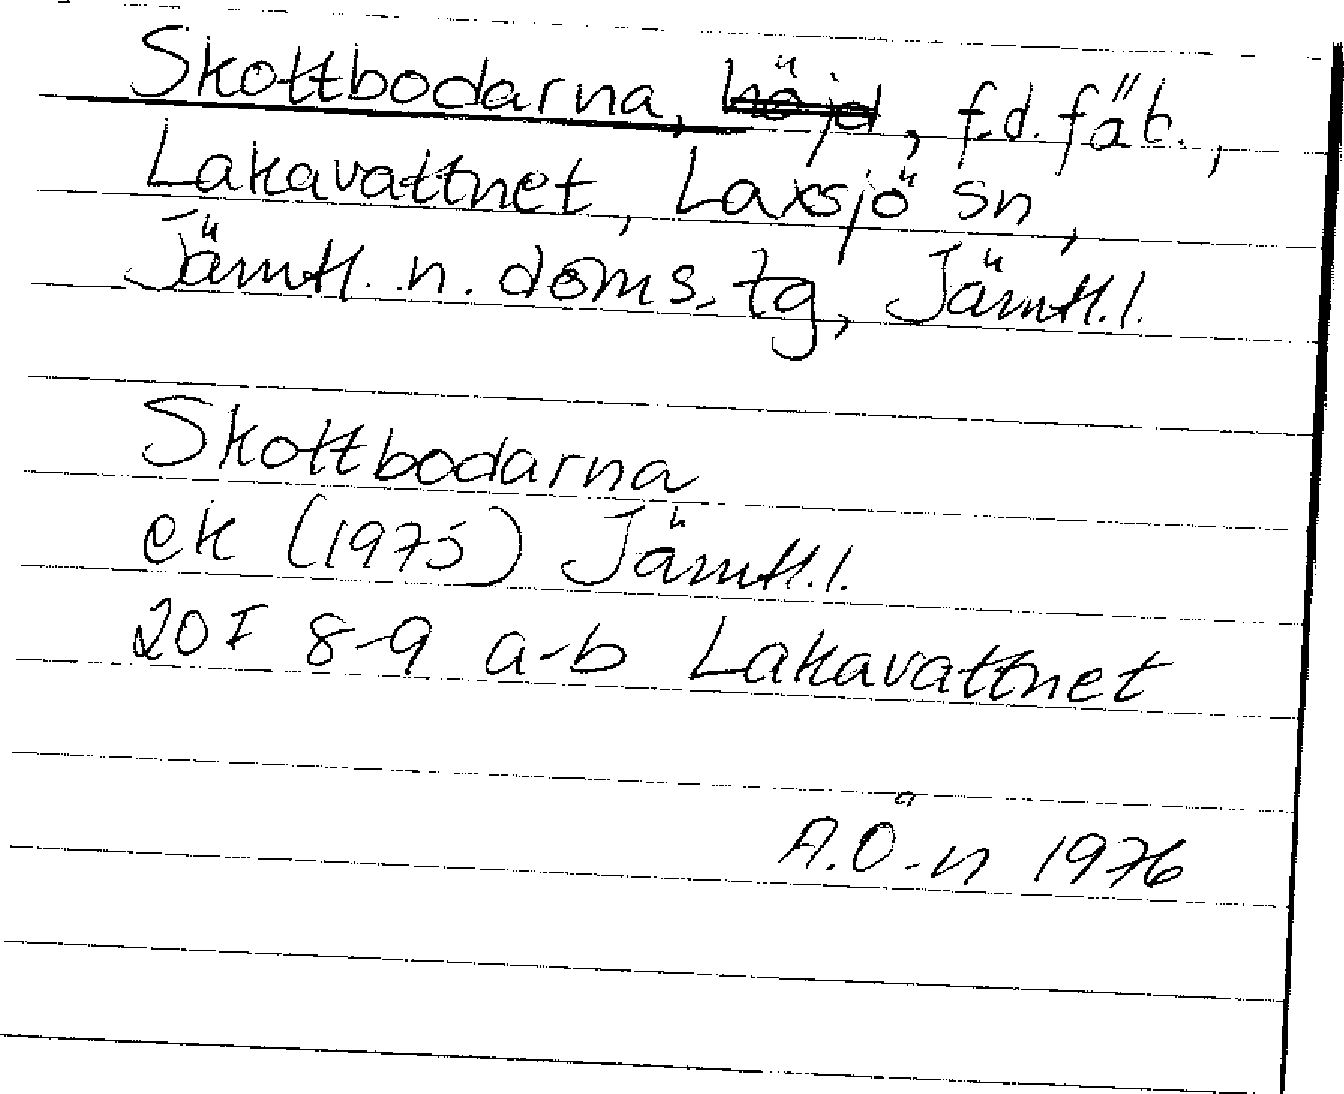 Skottbodarna, höjd, f.d. fäb.,
Lakavattnet, Laxsjö sn,
Jämtl. n. doms. tg, Jämtl. l.
Skottbodarna
ek (1975) Jämtl. l.
20 F 8-9 a-b Lakavattnet
A.Ö-n 1976